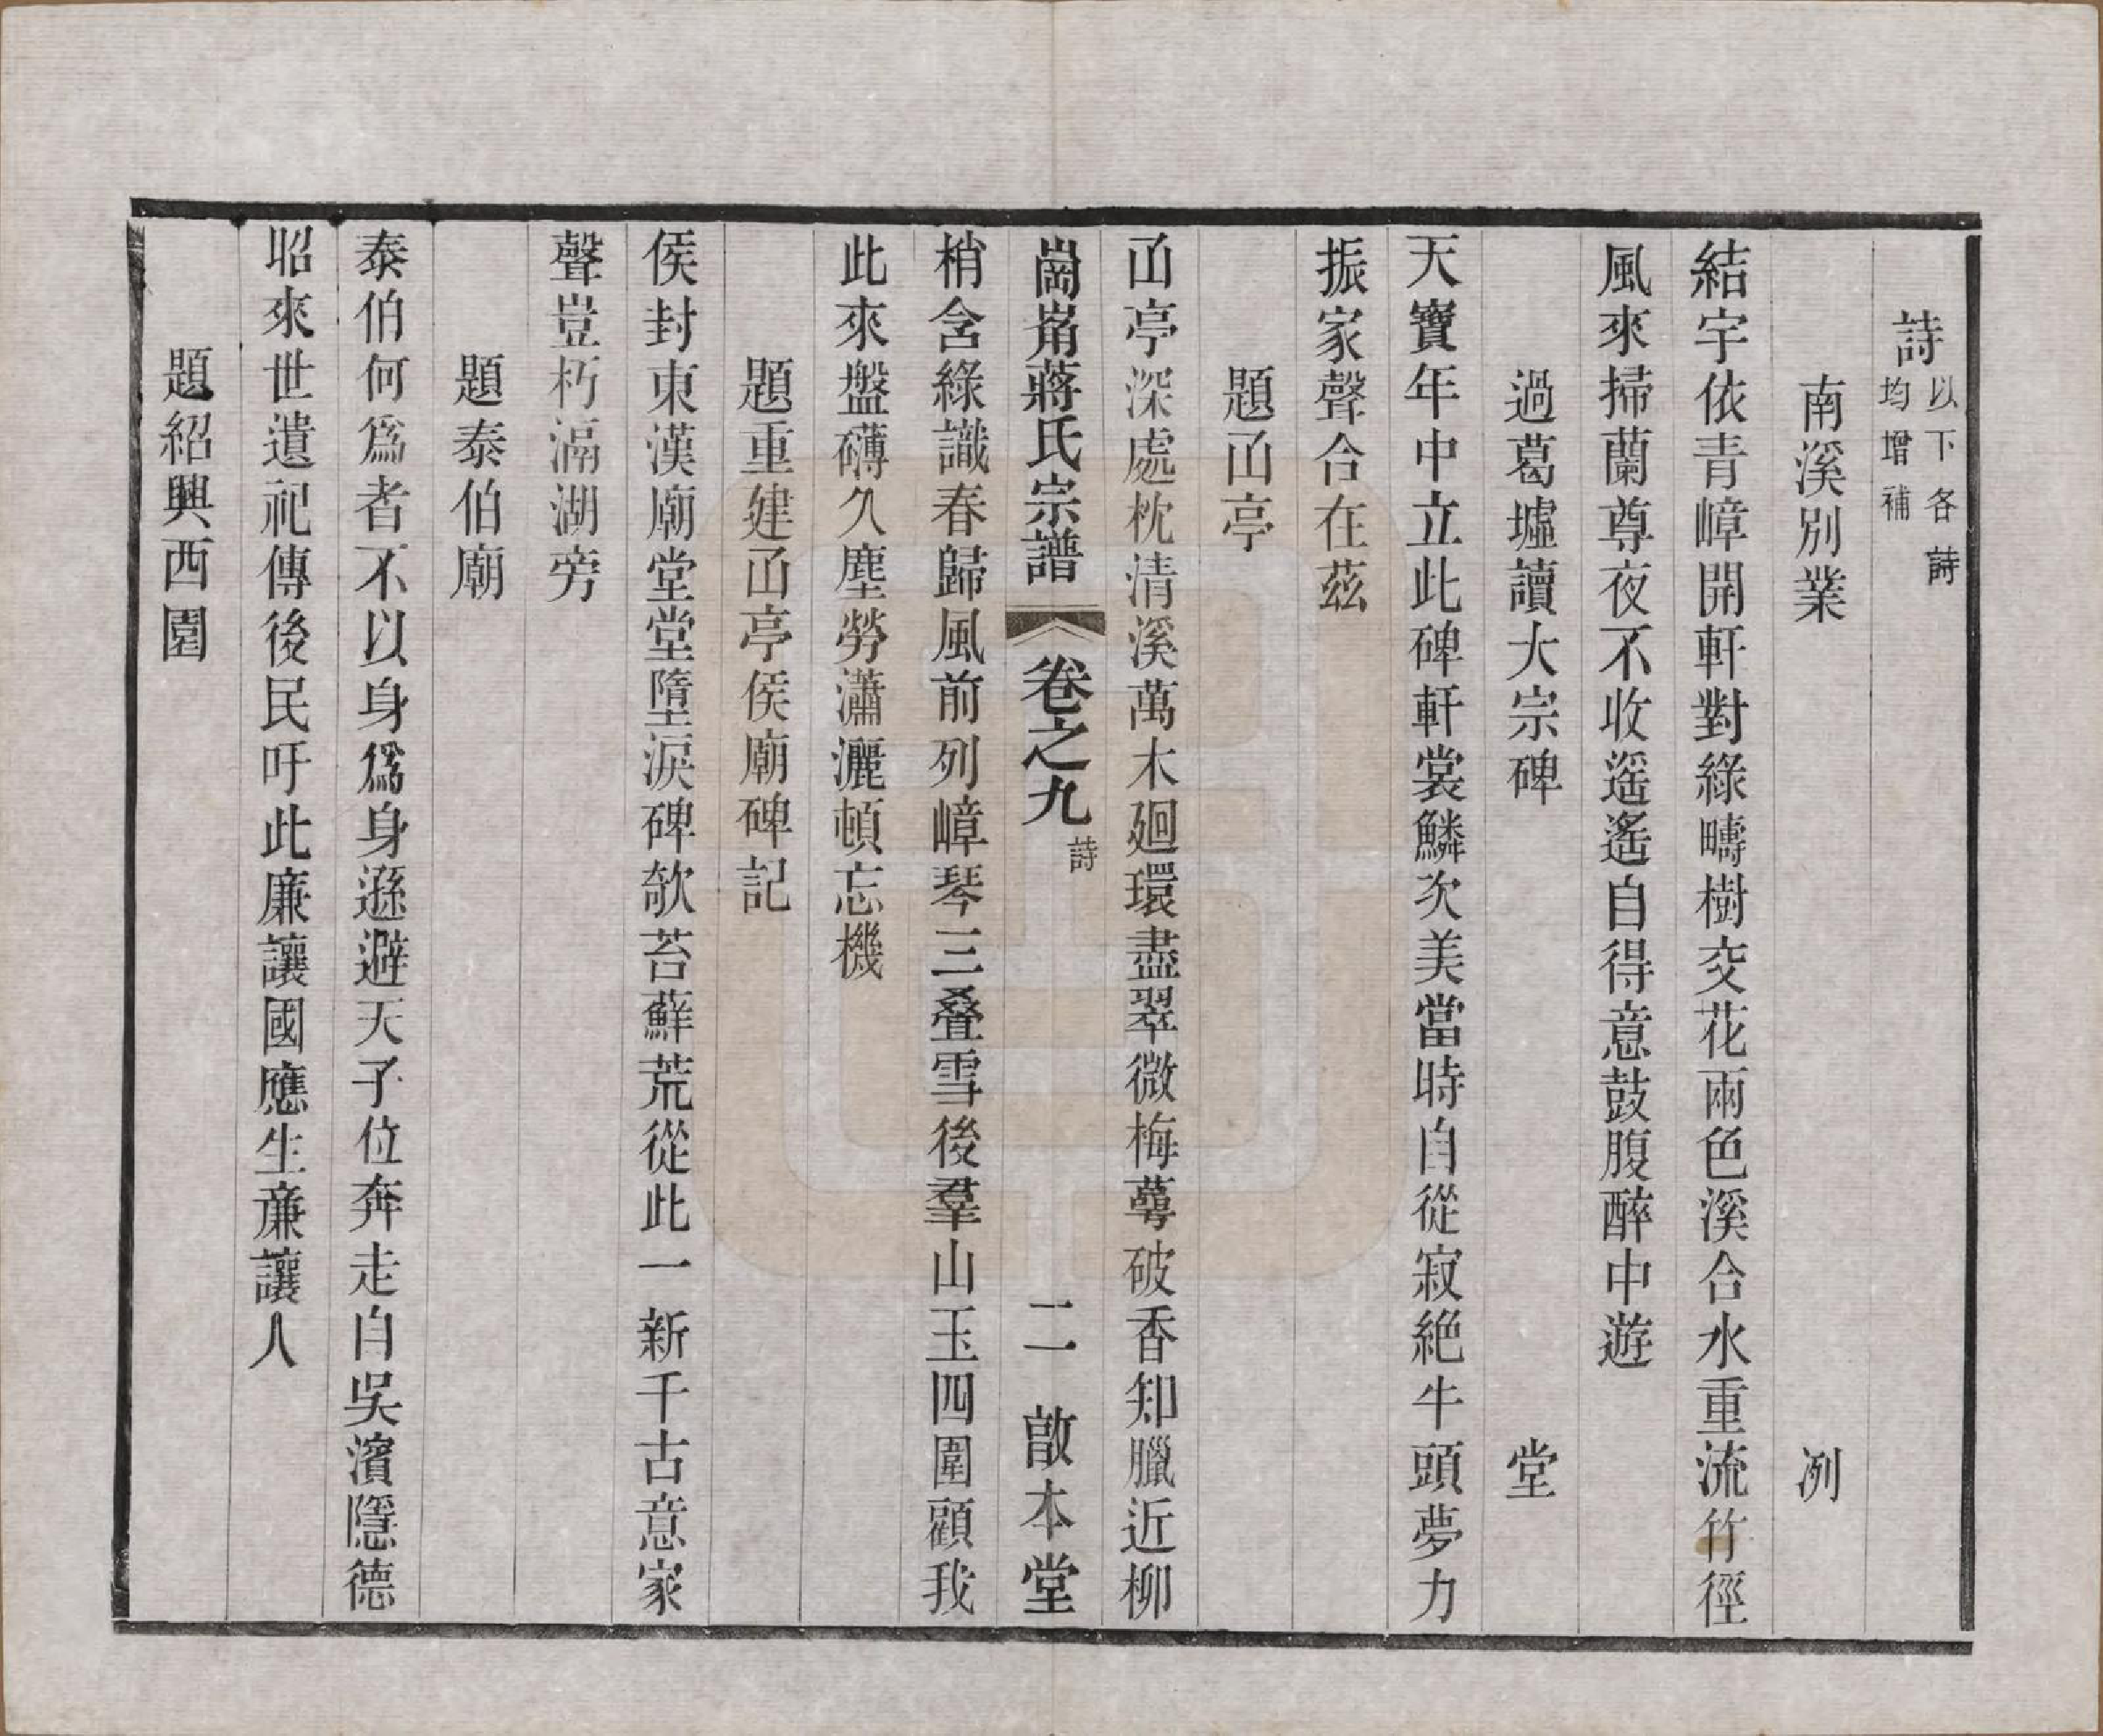 詩以下各詩均增補
南溪別業　冽
結宇依青嶂開軒對綠疇樹交花兩色溪合水重流竹徑
風來掃蘭尊夜不收遥遙自得意鼓腹醉中遊
過葛墟讀大宗碑　堂
天寶年中立此碑軒裳鱗次美當時自從寂絶牛頭夢力
振家聲合在茲
題凾亭
凾亭深處枕清溪萬木廻環盡翠微梅蕚破香知臘近柳
崗崗蔣氏宗譜　卷之九　詩　二　啟本堂
梢含綠識春歸風前列嶂琴三叠雪後羣山玉四圍顧我
此來盤礴久塵勞瀟灑頓忘機
題重建凾亭侯廟碑記
侯封東漢廟堂堂墮淚碑欹苔蘚荒從此一新千古意家
聲豈朽滆湖旁
題泰伯廟
泰伯何爲者不以身爲身遜避天子位奔走自吳濱隱德
昭來世遺祀傳後民吁此廉讓國應生亷讓人
題紹興西園